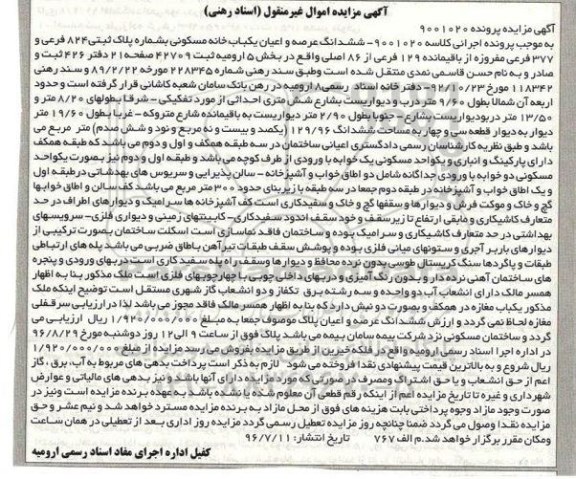 آگهی مزایده اموال غیرمنقول (اسناد رهنی)
آگهی مزایده پرونده ۹۰۰۱۰۲۰
به موجب پرونده اجرائی کلاسه ۹۰۰۱۰۲۰- ششدانگ عرصه و اعیان یکباب خانه مسکونی بشماره پلاک ثبتی ۸۲۴ فرعی و
۳۷۷ فرعی مفروزه از باقیمانده ۱۲۹ فرعی از ۸۶ اصلی واقع در بخش ۵ ارومیه ثبت ۴۲۷۰۹ صفحه ۲۱ دفتر ۴۲۶ ثبت و
صادر و به نام حسن قاسمی نمدی منتقل شده است وطبق سند رهنی شماره ۲۲۸۳۴۵ مورخه ۸۹/۲/۲۲ و سند رهنی
۱۱۸۳۴۲ مورخ ۹۱/۰۵/۲۳- دفترخانه اسناد رسمی ۸ ارومیه در رهن بانک سامان شعبه کاشانی قرار گرفته است و حدود
اربعه آن شمالا بطول ۹/۶۰ متر درب و دیواریست بشارع شش متری احداثی از مورد تفکیکی - شرقا بطولهای ۸/۲۰ متر و
۱۳/۵۰ متر دربودیواریست بشارع - جنوبا بطول ۲/۹۰ متر دیواریست به باقیمانده شارع متروکه - غربا بطول ۱۹/۶۰ متر
دیوار به دیوار قطعه سی و چهار به مساحت ششدانگ ۱۲۹/۹۶ (یکصد و بیست و نه مربع و نود و شش صدم) متر مربع می
باشد و طبق نظریه کارشناس رسمی دادگستری اعیانی ساختمان در سه طبقه همکف و اول و دوم می باشد که طبقه همکف
دارای پارکینگ و انباری و یکواحد مسکونی یک خوابه با ورودی از طرف کوچه می باشد و طبقه اول و دوم نیز بصورت یکواحد
مسکونی دو خوابه با ورودی جداگانه شامل دو اطاق خواب و آشپزخانه - سالن پذیرایی و سرویس های بهداشتی درطبقه اول
و یک اطاق خواب و آشپزخانه در طبقه دوم جمعا در سه طبقه با زیربنای حدود ۳۰۰ متر مربع می باشد کف سالن و اطاق خوابها
گچ و خاک و موکت فرش و دیوارها و سقفها گچ و خاک و سفیدکاری است کف آشپزخانه ها سرامیک و دیوارهای اطراف در حد
متعارف کاشیکاری و مابقی ارتفاع تا زیرسقف و خود سقف اندود سفیدکاری-کابینتهای زمینی و دیواری فلزی- سرویسهای
بهداشتی در حد متعارف کاشیکاری و سرامیک بوده و ساختمان فاقد نماسازی است اسکلت ساختمان بصورت ترکیبی از
دیوارهای باربر آجری و ستونهای میانی فلزی بوده و پوشش سقف طبقات تیرآهن باطاق ضربی می باشد پله های ارتباطی
طبقات و پاگردها سنگ کریستال طوسی بدون نرده محافظ و دیوارها وسقف راه پله سفیدکاری است دربهای ورودی و پنجره
های ساختمان آهنی نرده دار و بدون رنگ آمیزی و دربهای داخلی چوبی با چهارچوبهای فلزی است ملک مذکور بنا به اظهار
همسر مالک دارای انشعاب آب دو واحده و سه رشته برق تکفاز و دو انشعاب گاز شهری مستقل است توضیح اینکه ملک
مذکور یکباب مغازه در همکف و بصورت دو نبش دارد که بنابه اظهار همسر مالک فاقد مجوز می باشد لذا درارزیابی سرقفلی
مغازه لحاظ نمی گردد و ارزش ششدانگ عرصه و اعیان پلاک موصوف جمعا به مبلغ ۱/۹۲۰/۰۰۰/۰۰۰ ریال ارزیابی می
گردد و ساختمان مسکونی نزد شرکت بیمه سامان بیمه می باشد پلاک فوق از ساعت ۹ الی ۱۲ روز دوشنبه مورخ ۹۶/۸/۲۹
در اداره اجرا اسناد رسمی ارومیه واقع در فلکه خیرین از طریق مزایده بفروش می رسد مزایده از مبلغ ۱/۹۲۰/۰۰۰/۰۰۰
ریال شروع و به بالاترین قیمت پیشنهادی نقدا فروخته می شود لازم به ذکر است پرداخت بدهی های مربوط به آب، برق، گاز
اعم از حق انشعاب و یا حق اشتراک ومصرف در صورتی که مورد مزایده دارای آنها باشد و نیز بدهی های مالیاتی و عوارض
شهرداری و غیره تا تاریخ مزایده اعم از اینکه رقم قطعی آن معلوم شده یا نشده باشد به عهده برنده مزایده است ونیز در
صورت وجود مازاد وجوه پرداختی بابت هزینه های فوق از محل مازاد به برنده مزایده مسترد خواهد شد و نیم عشر و حق
مزایده نقدا وصول می گردد ضمنا چنانچه روز مزایده تعطیل رسمی گردد مزایده روز اداری بعد از تعطیلی در همان ساعت
ومکان مقرر برگزار خواهد شد. م الف ۷۶۷ تاریخ انتشار: ۹۶/۷/۱۱
کفیل اداره اجرای مفاد اسناد رسمی ارومیه